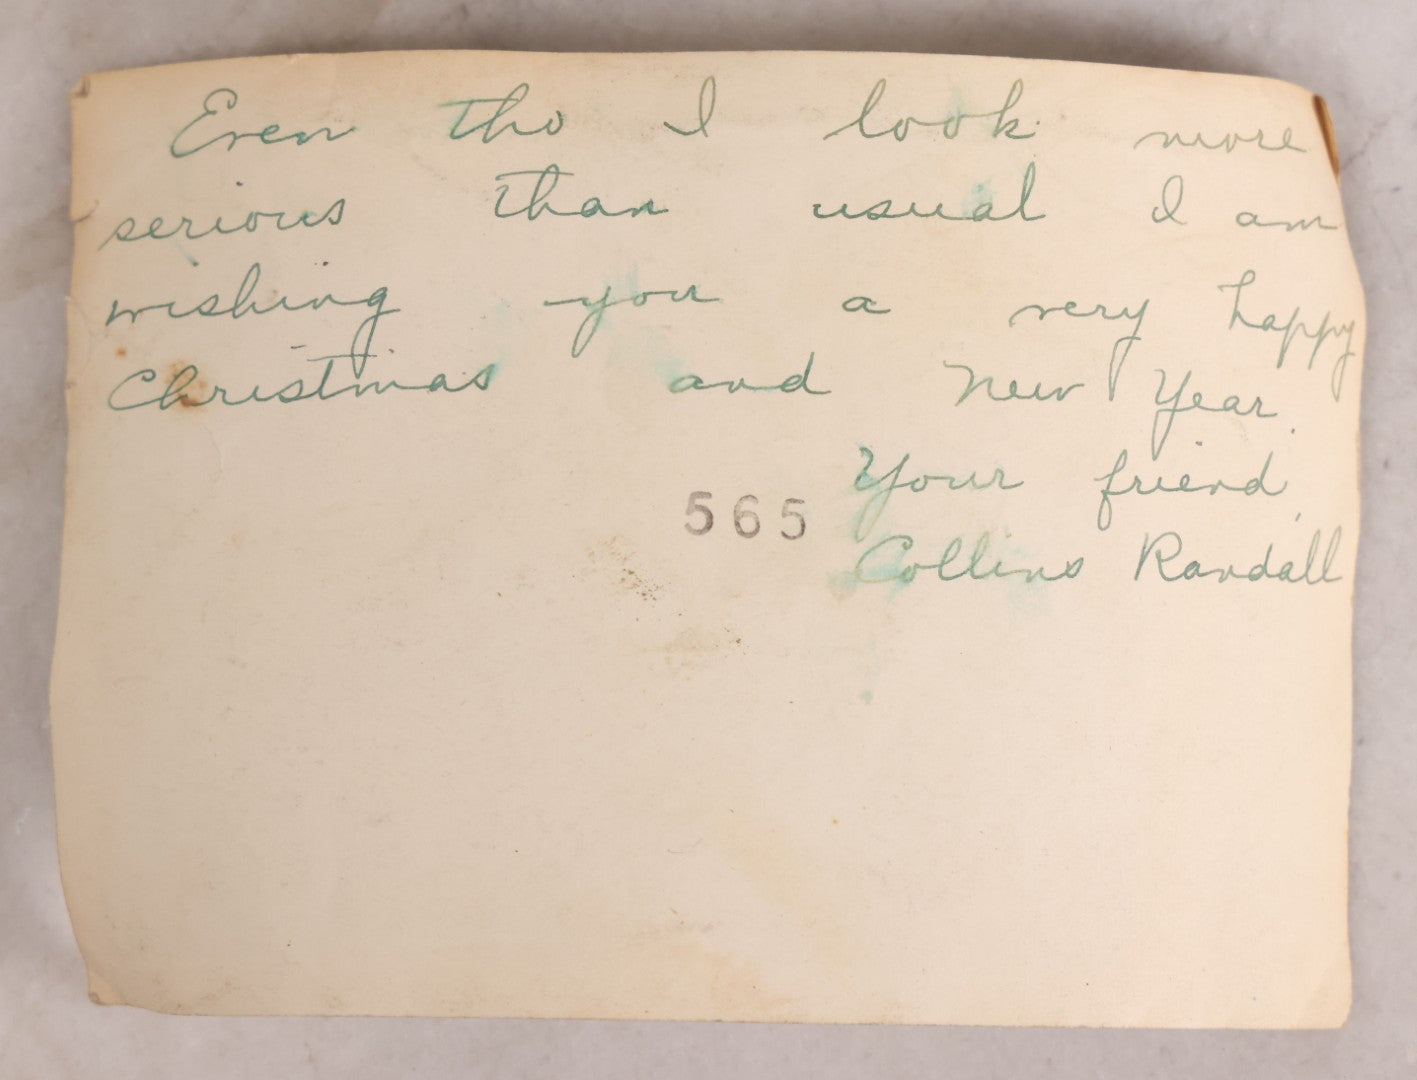 Even tho I look more
serious than usual I am
wishing you a very happy
Christmas and New Year.
Your friend,
565
Collins Randall